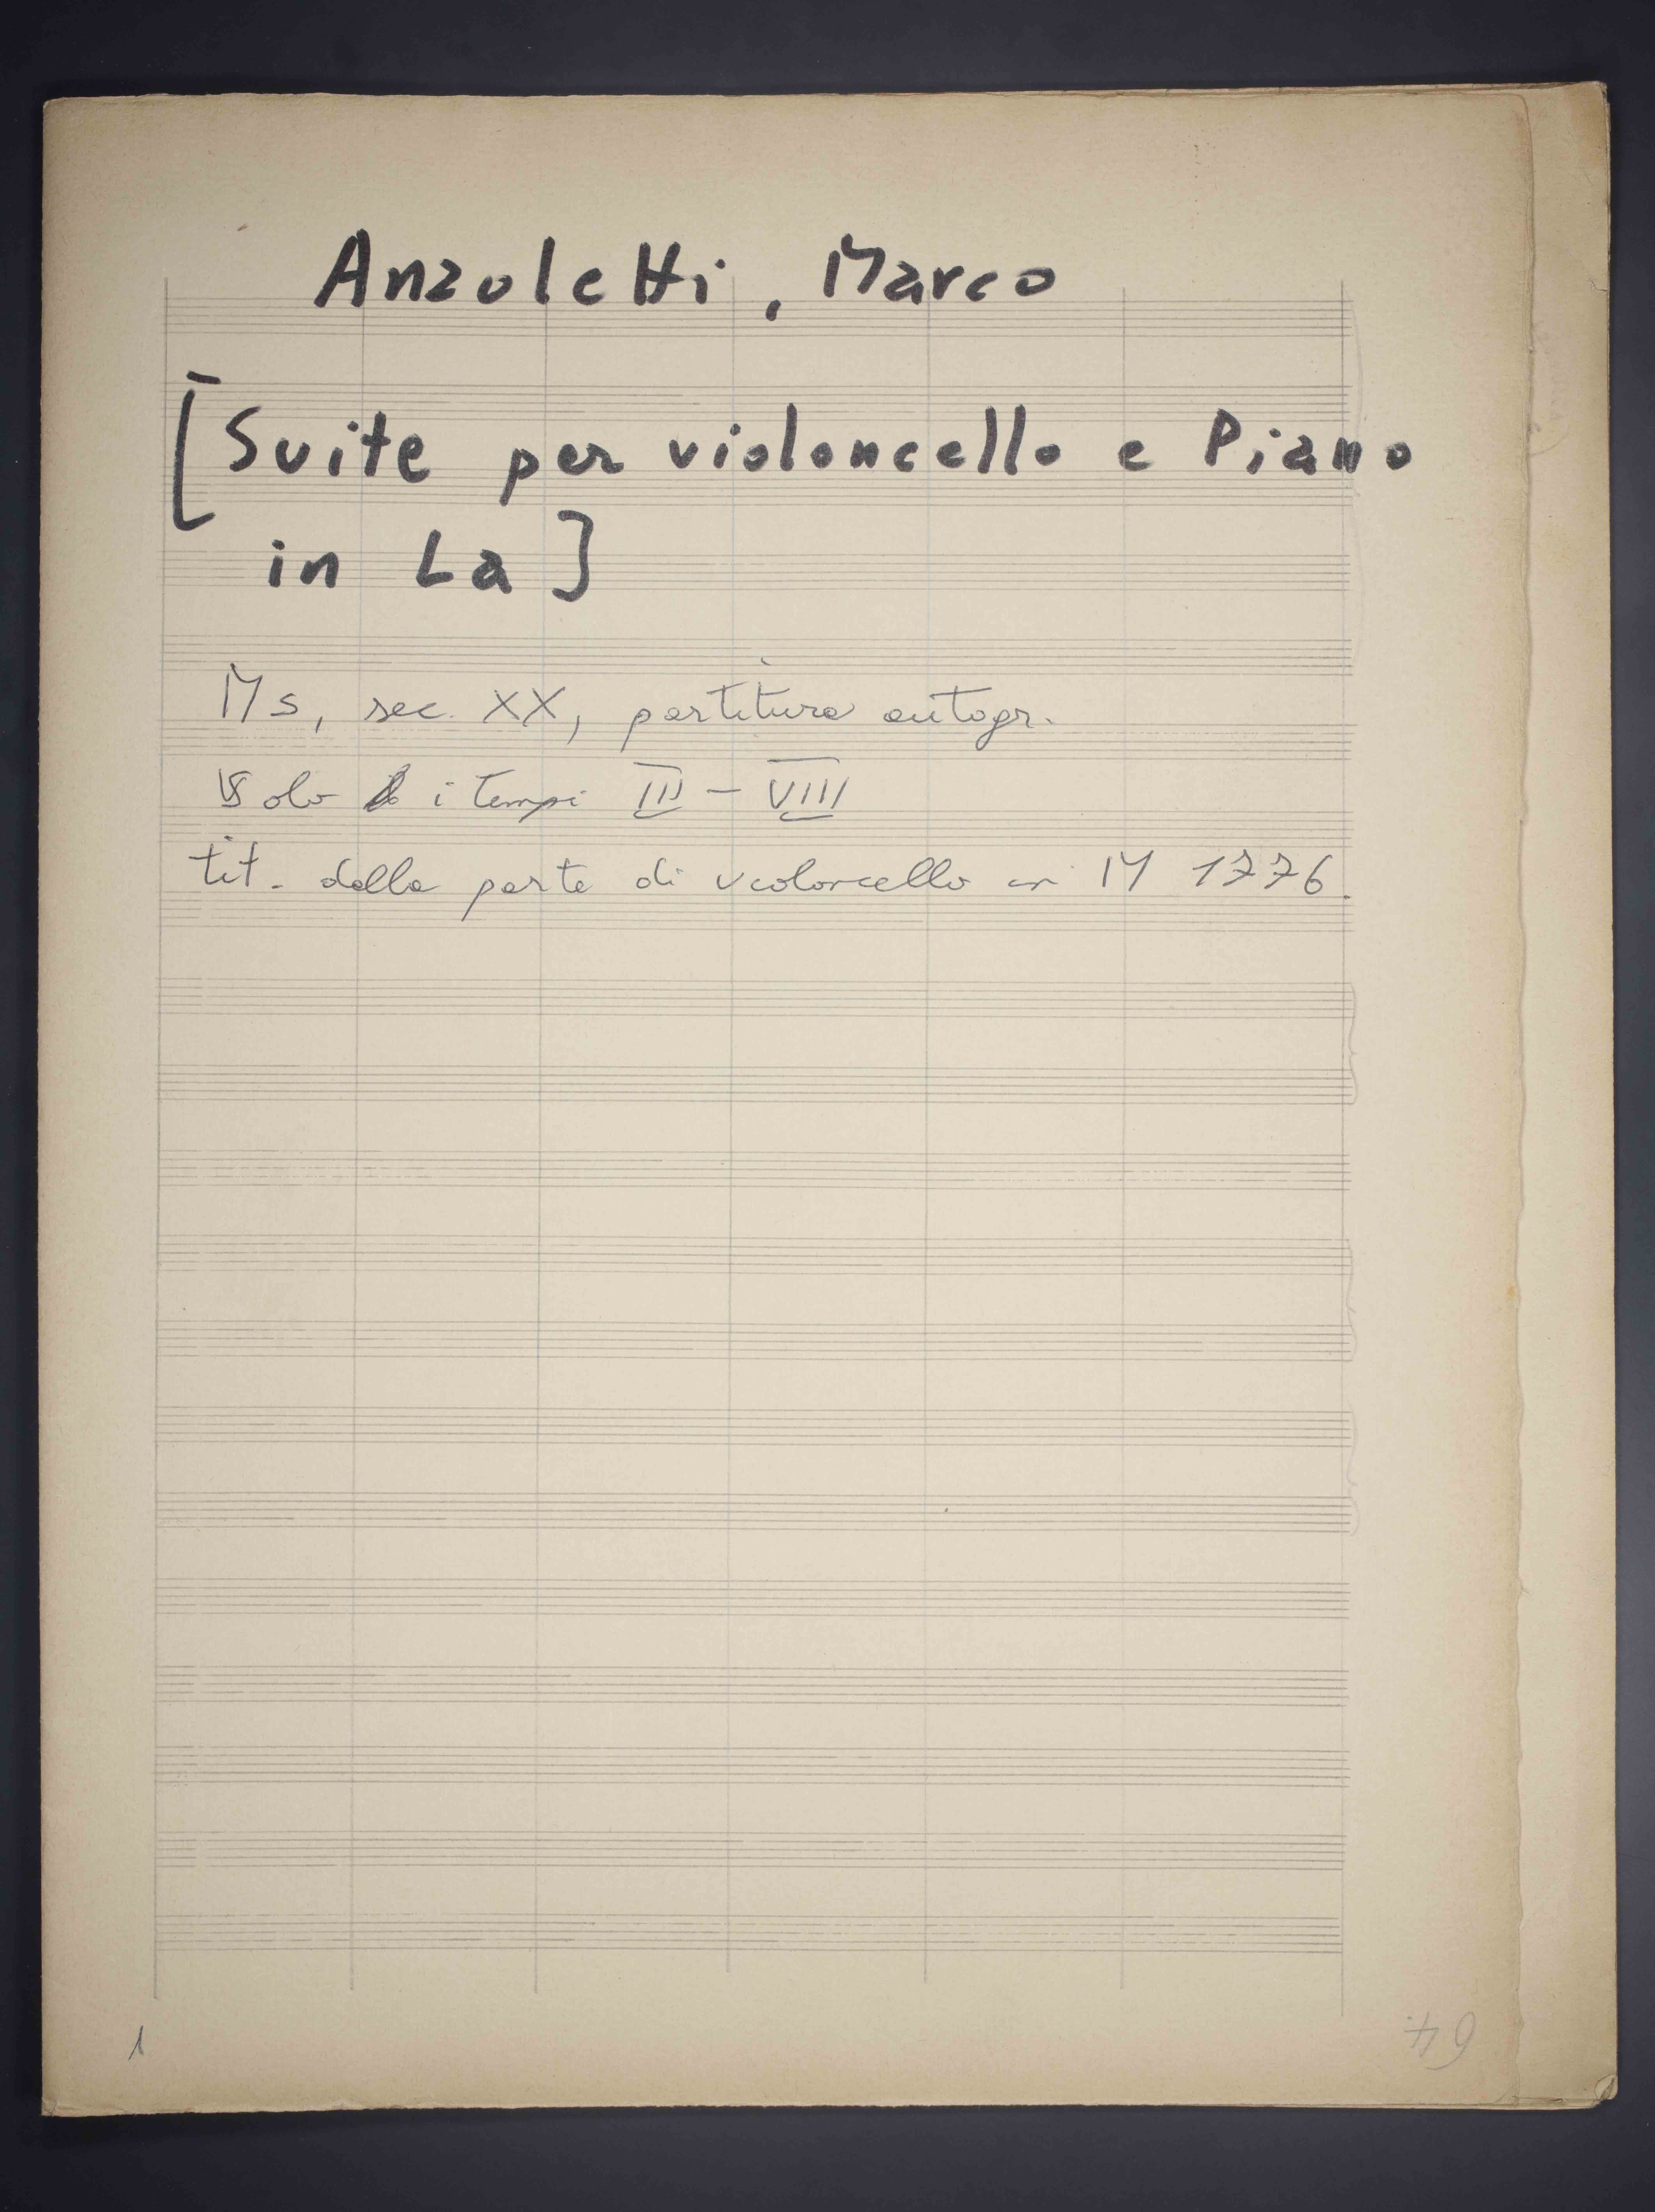 Anzoletti, Marco
[Suite per violoncello e Piano
in La]
Ms, sec. XX, partitura autogr.
Solo i tempi III - VIII
tit. dalla parte di violoncello in M 1776.
1
64.